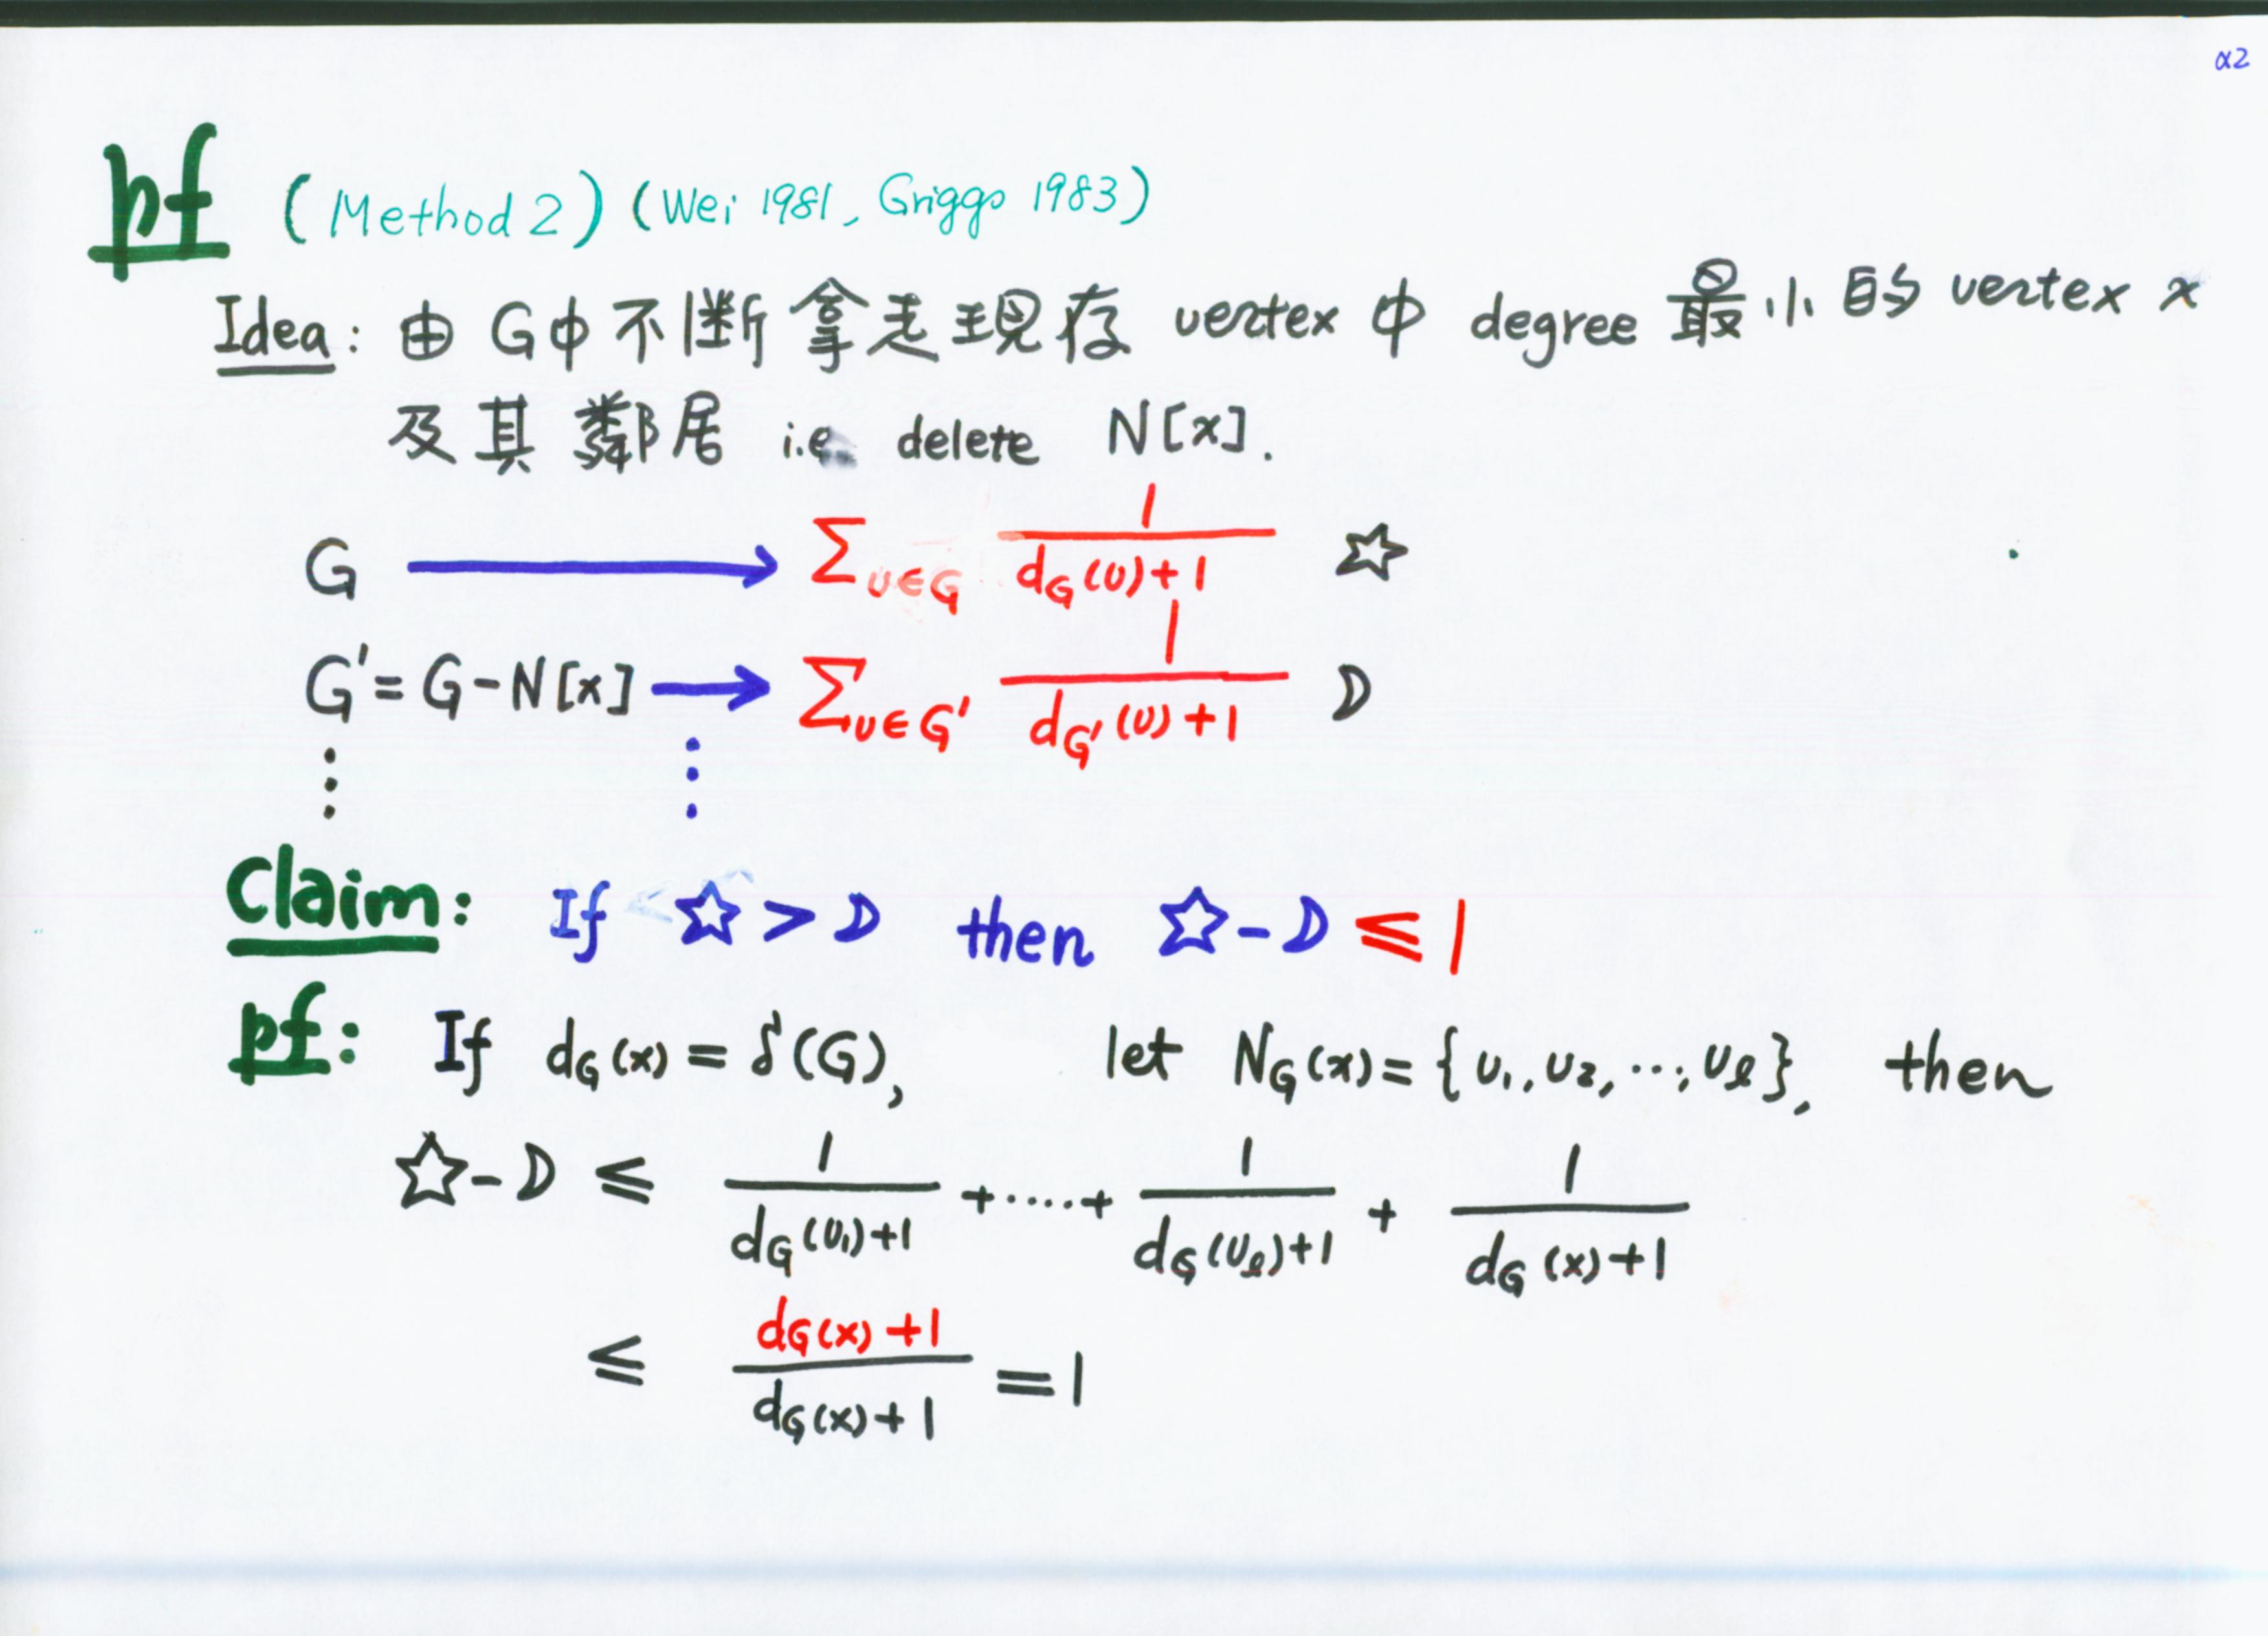 α2
pf (Method 2) (Wei 1981, Griggs 1983)
Idea: 由 G中 不斷 拿走現存 vertex 中 degree 最小的 vertex x
及其鄰居 i.e. delete N[x].
G ⟶ Σ_{v∈G} 1/(d_G(v)+1) ☆
G' = G-N[x] ⟶ Σ_{v∈G'} 1/(d_{G'}(v)+1) D
⋮ ⋮
Claim: If ☆ > D then ☆-D ≤ 1
pf: If d_G(x) = δ(G), let N_G(x) = {v_1, v_2, ⋯, v_ℓ}, then
☆-D ≤ 1/(d_G(v_1)+1) +⋯⋅+ 1/(d_G(v_ℓ)+1) + 1/(d_G(x)+1)
≤ (d_G(x)+1)/(d_G(x)+1) = 1